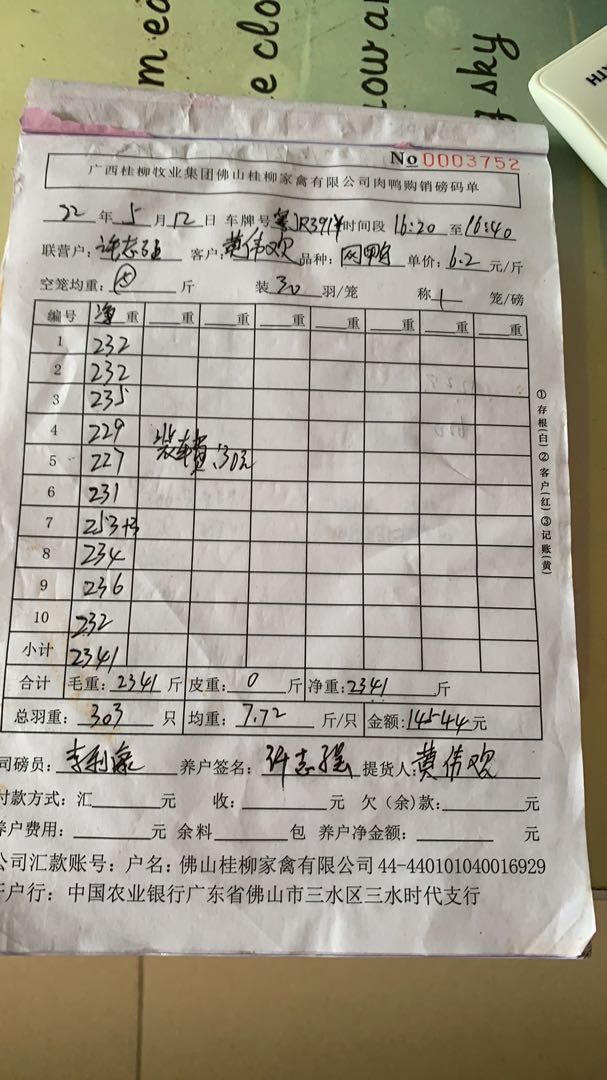 m ea
e clo
now a
sky
No 0003752
广西桂柳牧业集团佛山桂柳家禽有限公司肉鸭购销磅码单
22年5月12日 车牌号 粤JR391 时间段16:20至16:40
联营户:许志强 客户:黄伟欢 品种: 单价:6.2元/斤
空笼均重: 斤 装30羽/笼 称1笼/磅
编号 净重 重 重 重 重 重 重 重
1 232
2 232
3 235
4 229 装车费:30元
5 227
6 231
7 253+3
8 234
9 236
10 232
小计 2341
合计 毛重:2341斤 皮重:0斤 净重:2341斤
总羽重:303只 均重:7.72斤/只 金额:14544元
司磅员: 养户签名:许志强 提货人:黄伟欢
付款方式:汇 元 收: 元 欠(余)款: 元
养户费用: 元 余料 包 养户净金额: 元
公司汇款账号:户名:佛山桂柳家禽有限公司 44-440101040016929
开户行:中国农业银行广东省佛山市三水区三水时代支行
①存根(白)②客户(红)③记账(黄)